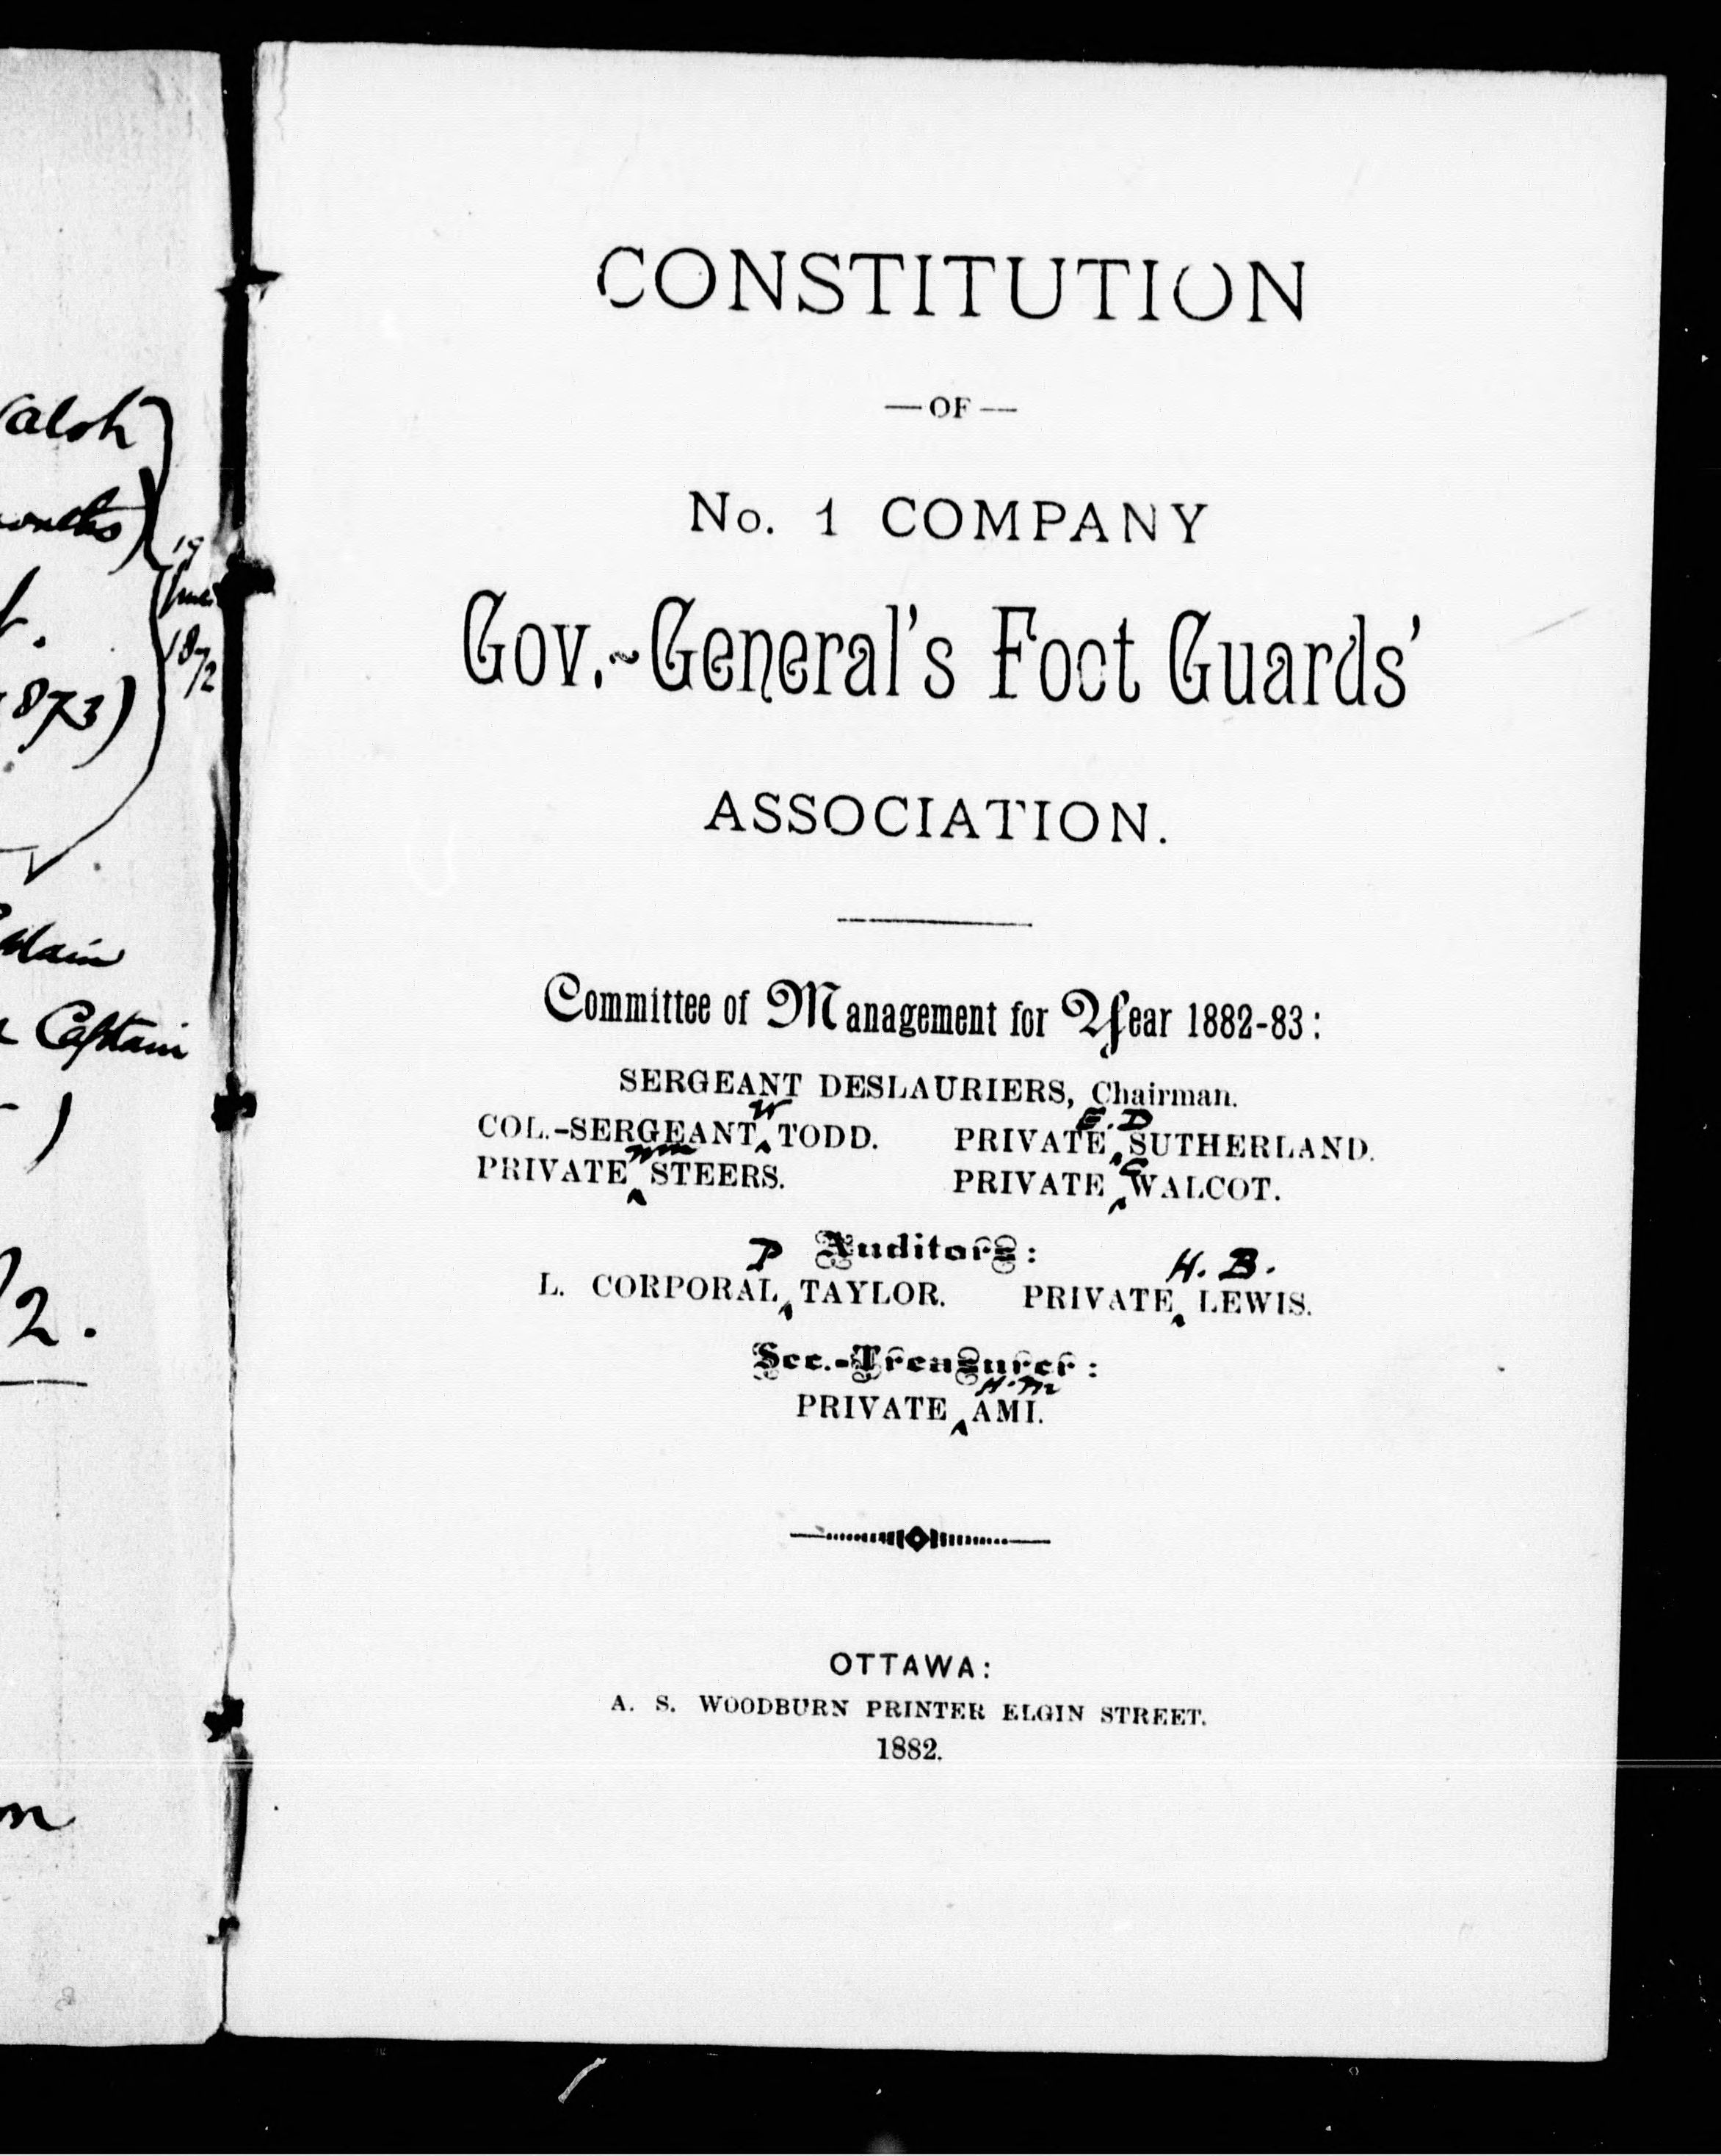 CONSTITUTION
— OF —
No. 1 COMPANY
Gov.-General's Foot Guards'
ASSOCIATION.
Committee of Management for Year 1882-83:
SERGEANT DESLAURIERS, Chairman.
COL.-SERGEANT W TODD. PRIVATE E. D SUTHERLAND.
PRIVATE Wm STEERS. PRIVATE C WALCOT.
Auditors:
L. CORPORAL P TAYLOR. PRIVATE H. B. LEWIS.
Sec.-Treasurer:
PRIVATE H. M AMI.
OTTAWA:
A. S. WOODBURN PRINTER ELGIN STREET.
1882.
19
June
1872
1873)
Captain
2.